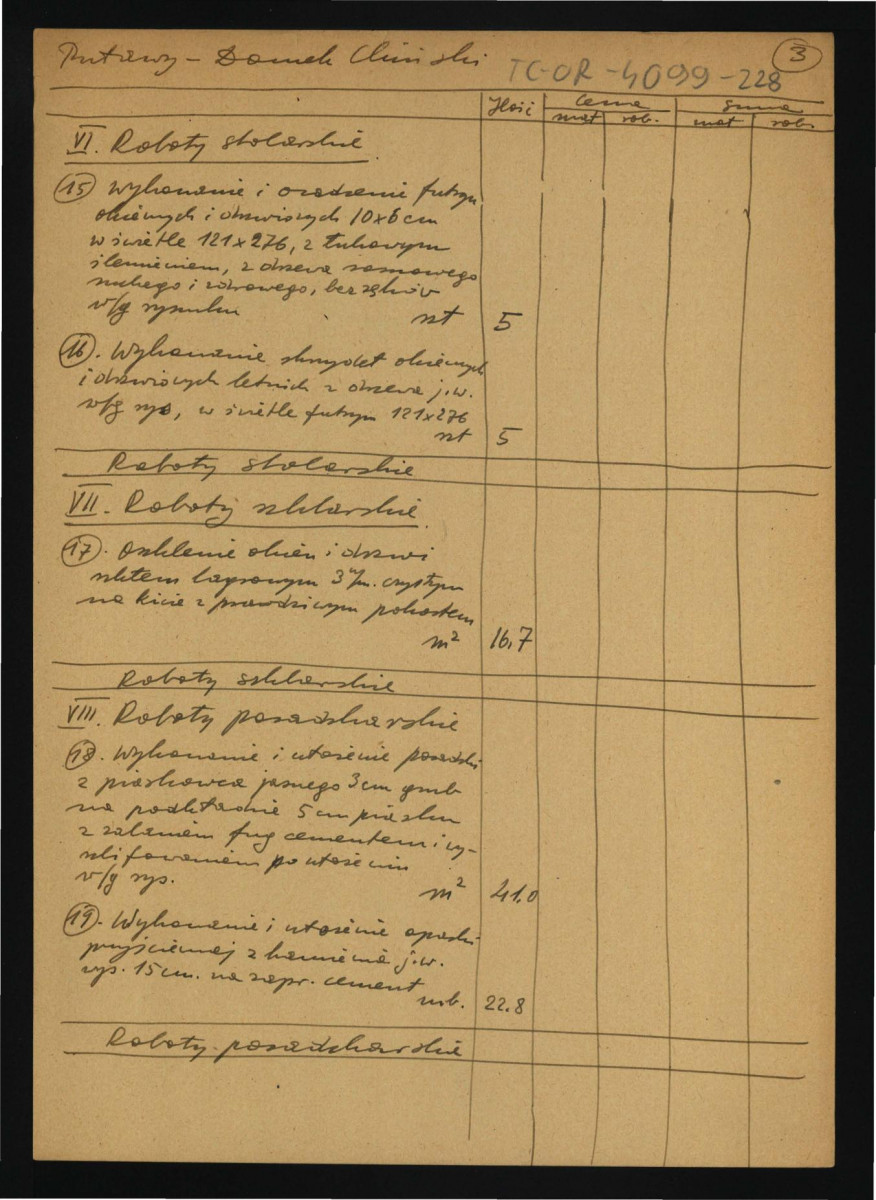 Puławy – Domek Chiński
TC-OR-4099-228
3
Ilość cena suma
mat rob. mat rob.
VI. Roboty stolarskie
15 Wykonanie i osadzenie futryn
okiennych i drzwiowych 10x6 cm
w świetle 121x276, z łukowym
ślemieniem, z drzewa sosnowego
suchego i zdrowego, bez sęków
v/g rysunku szt 5
16. Wykonanie skrzydeł okiennych
i drzwiowych letnich z drzewa j.w.
v/g rys, w świetle futryn 121x276
szt 5
Roboty stolarskie
VII. Roboty szklarskie
17. Oszklenie okien i drzwi
szkłem lagrowym 3 m/m. czystym
na kicie z prawdziwym pokostem
m² 16,7
Roboty szklarskie
VIII. Roboty posadzkarskie
18. Wykonanie i ułożenie posadzki
z piaskowca jasnego 3 cm grub
na podkładzie 5 cm piasku
z zalaniem fug cementem i wy-
szlifowaniem po ułożeniu
v/g rys. m² 41.0
19. Wykonanie i ułożenie opaski
przyściennej z kamienia j.w.
wys. 15 cm. na zapr. cement
mb. 22.8
Roboty posadzkarskie